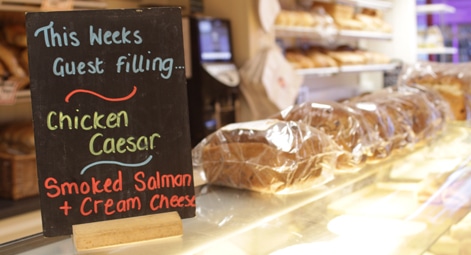 This Weeks
Guest filling...
Chicken
Caesar
Smoked Salman
+ Cream Cheese